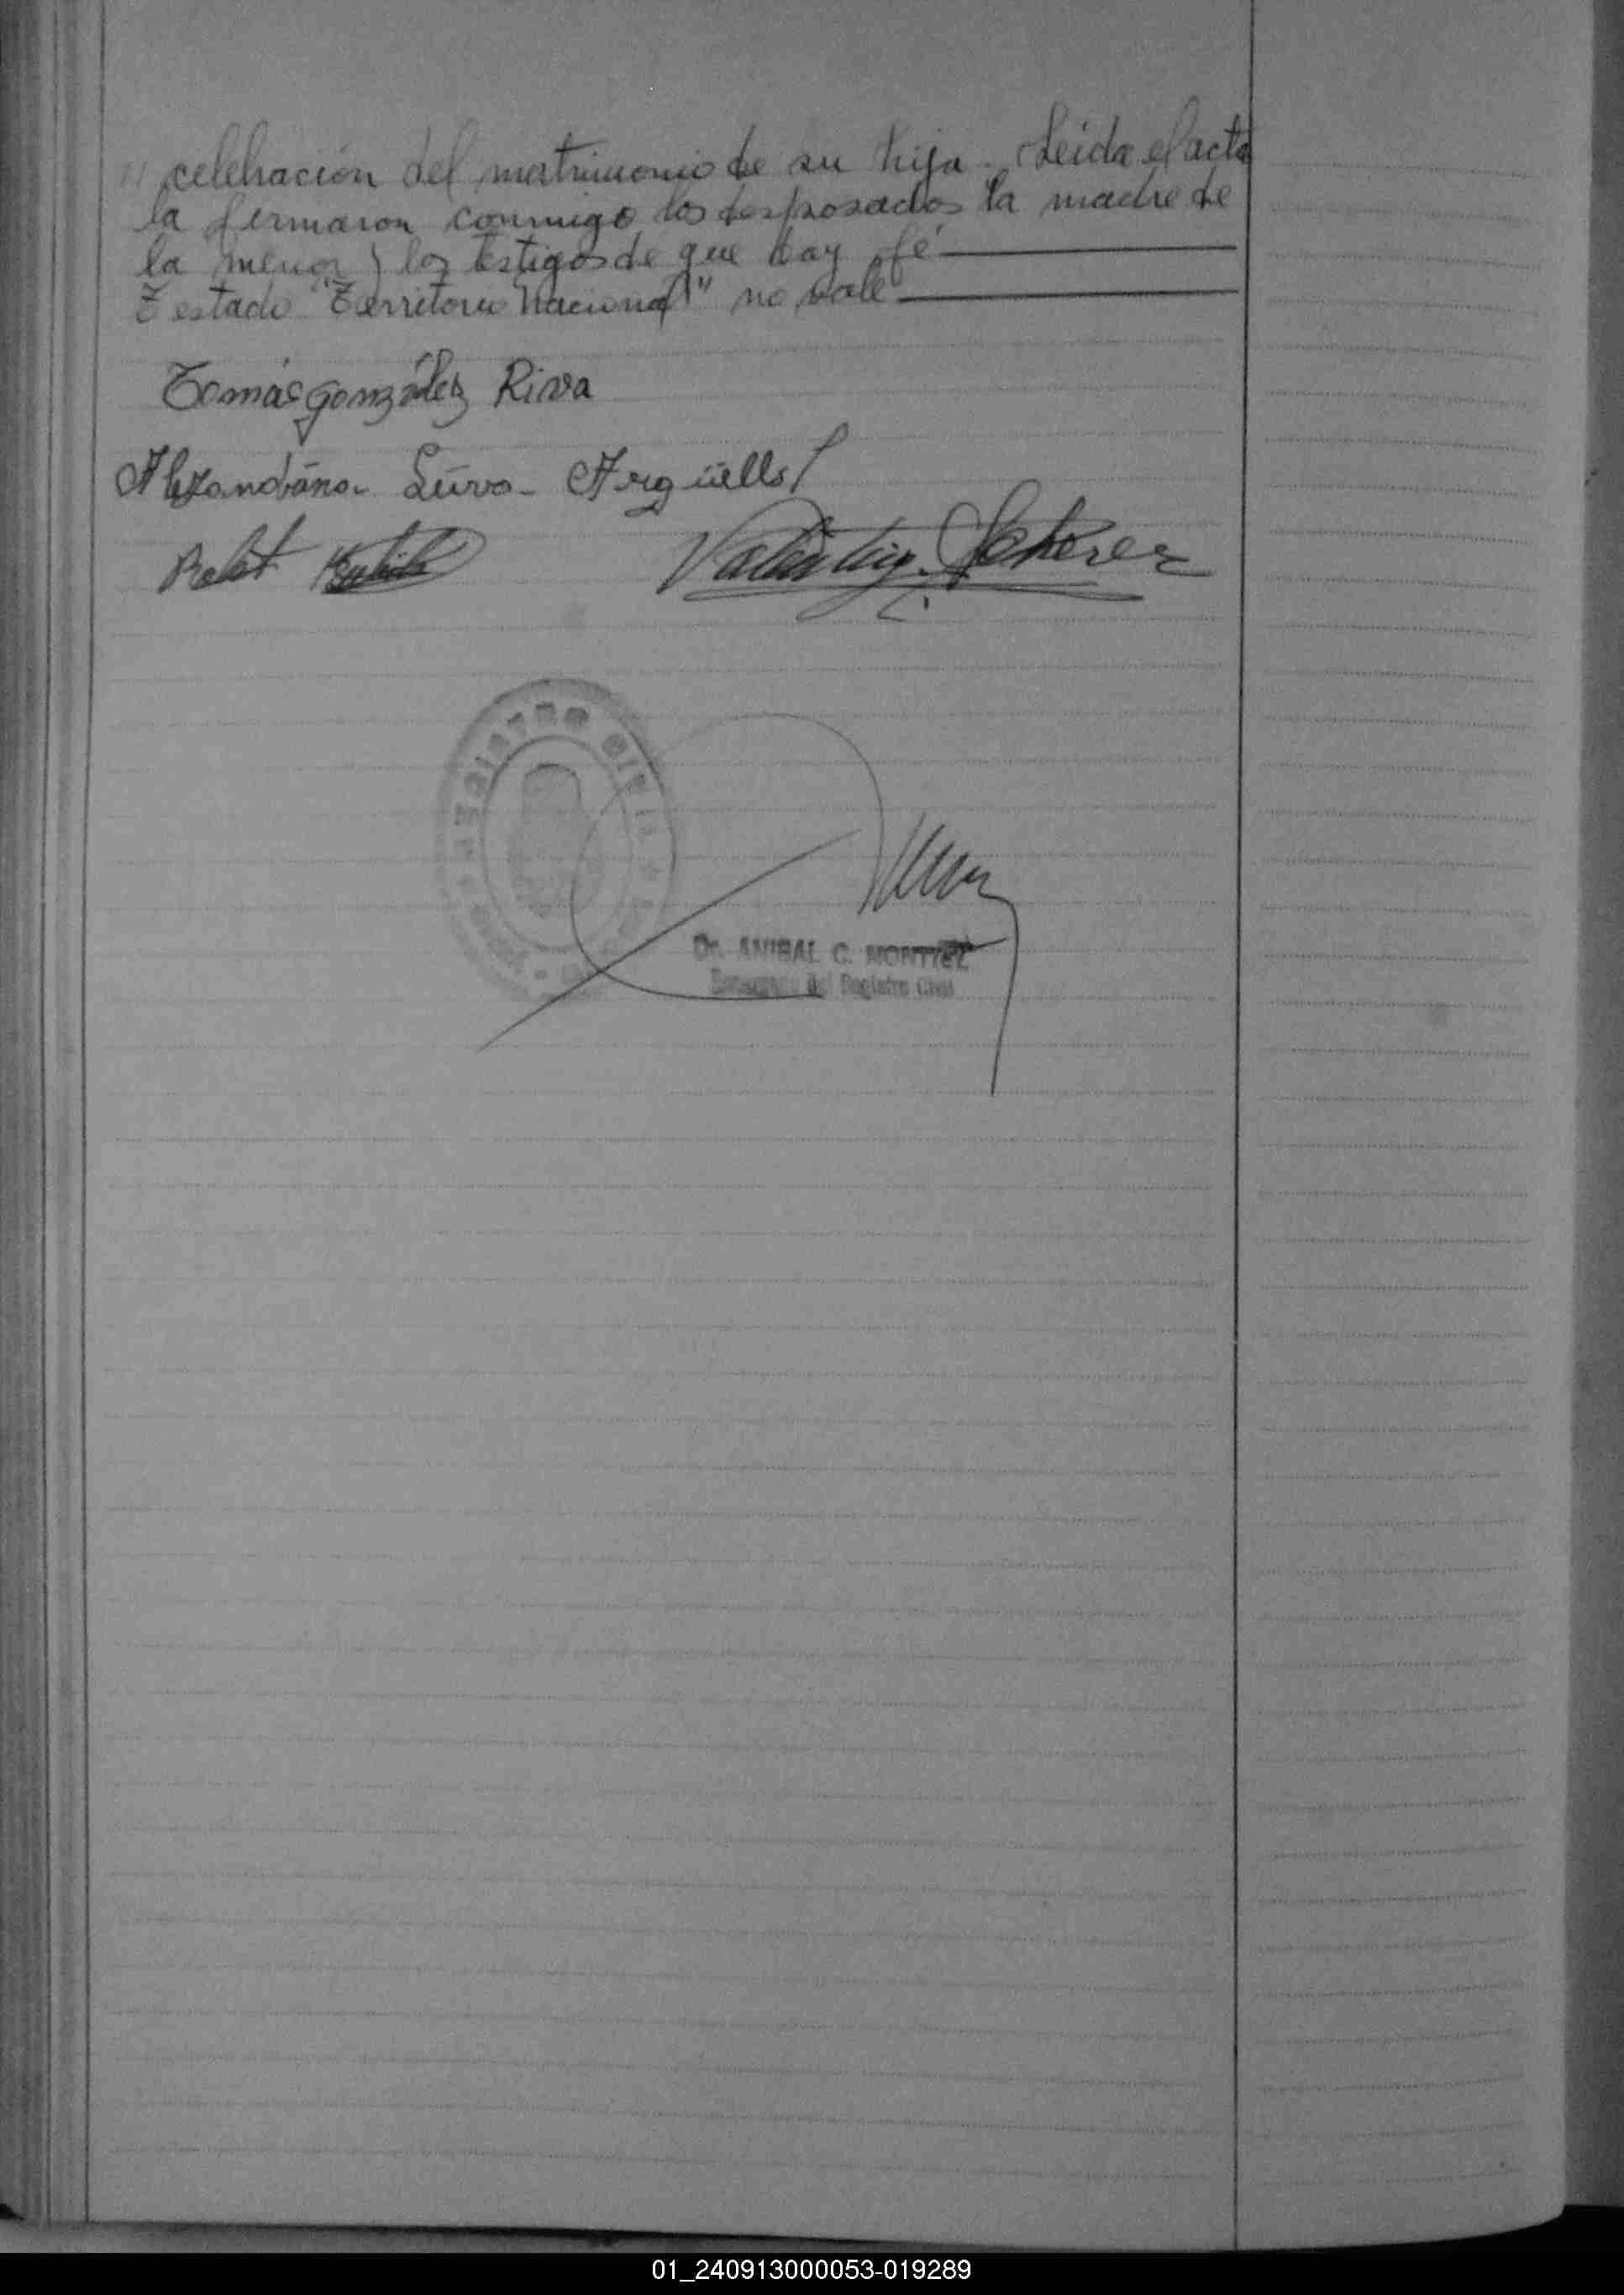 celebración del matrimonio de su hija. Leida el acta
la firmaron conmigo los desposados la madre de
la menor y los testigos de que doy fé
Testado "Territorio Nacional" no vale
Tomás González Riva
Argüello
Valentin Scherer
REGISTRO CIVIL
Dr. ANIBAL C. MONTIEL
del Registro Civil
01_240913000053-019289